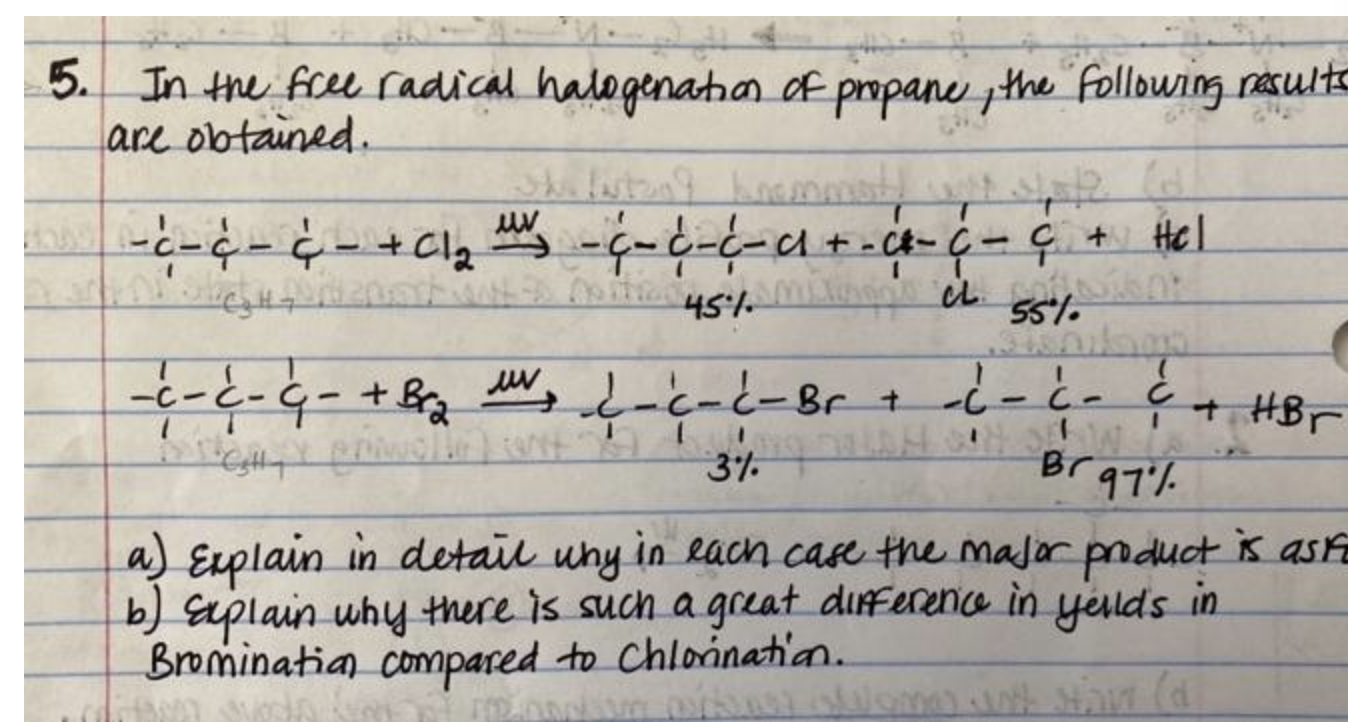 5. In the free radical halogenation of propane, the following results
are obtained.
-C-C-C- + Cl2 uv → -C-C-C-Cl + -C-C-C + Hcl
C3H7 45% Cl 55%
-C-C-C- + Br2 uv → -C-C-C-Br + -C-C-C + HBr
C3H7 3% Br 97%
a) Explain in detail why in each case the major product is as
b) Explain why there is such a great difference in yeilds in
Bromination compared to Chlorination.